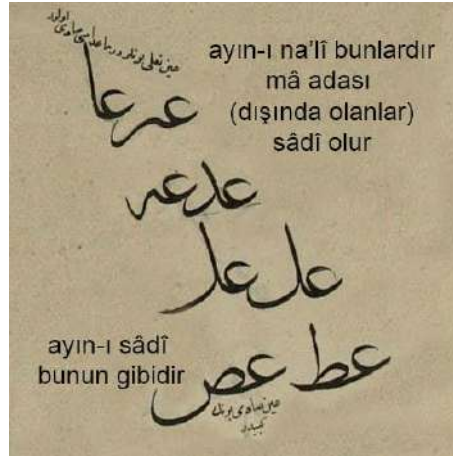 عین نعلی بونلردر ماعداسی صادی اولور
ayın-ı na'lî bunlardır
mâ adası
(dışında olanlar)
sâdî olur
عر عا
عد عه
عل
عط عص
ayın-ı sâdî
bunun gibidir
عین صادی بونك
كبیدر